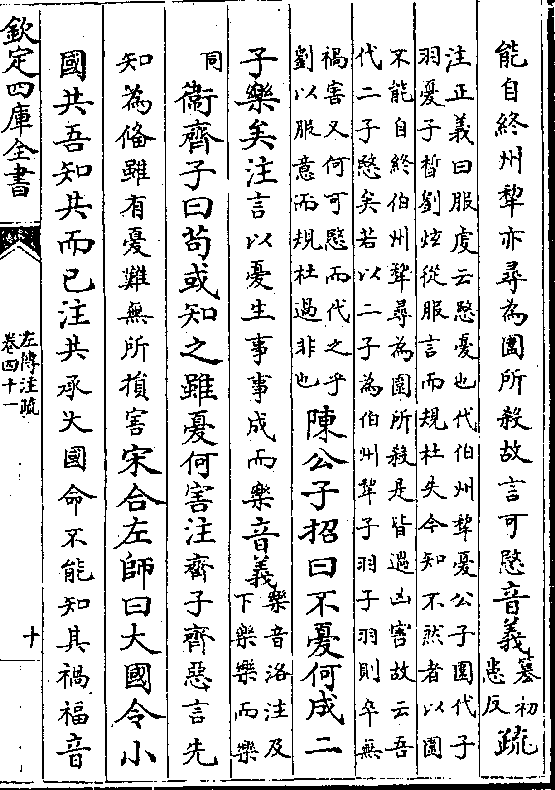 能自終州犂亦尋為圍所殺故言可愍音義篡初患反疏
注正義曰服虔云愍憂也代伯州犂憂公子圍代子
羽憂子晳劉炫從服言而規杜失今知不然者以圍
不能自終伯州犂尋為圍所殺是皆遇凶害故云吾
代二子愍矣若以二子為伯州犂子羽子羽則卒無
禍害又何可愍而代之乎
劉以服意而規杜過非也陳公子招曰不憂何成二
子樂矣注言以憂生事事成而樂音義樂音洛注及下樂樂而樂
同衞齊子曰苟或知之雖憂何害注齊子齊惡言先
知為備雖有憂難無所損害宋合左師曰大國令小
國共吾知共而已注共承大國命不能知其禍福音
欽定四庫全書
左傳注疏
卷四十一
十